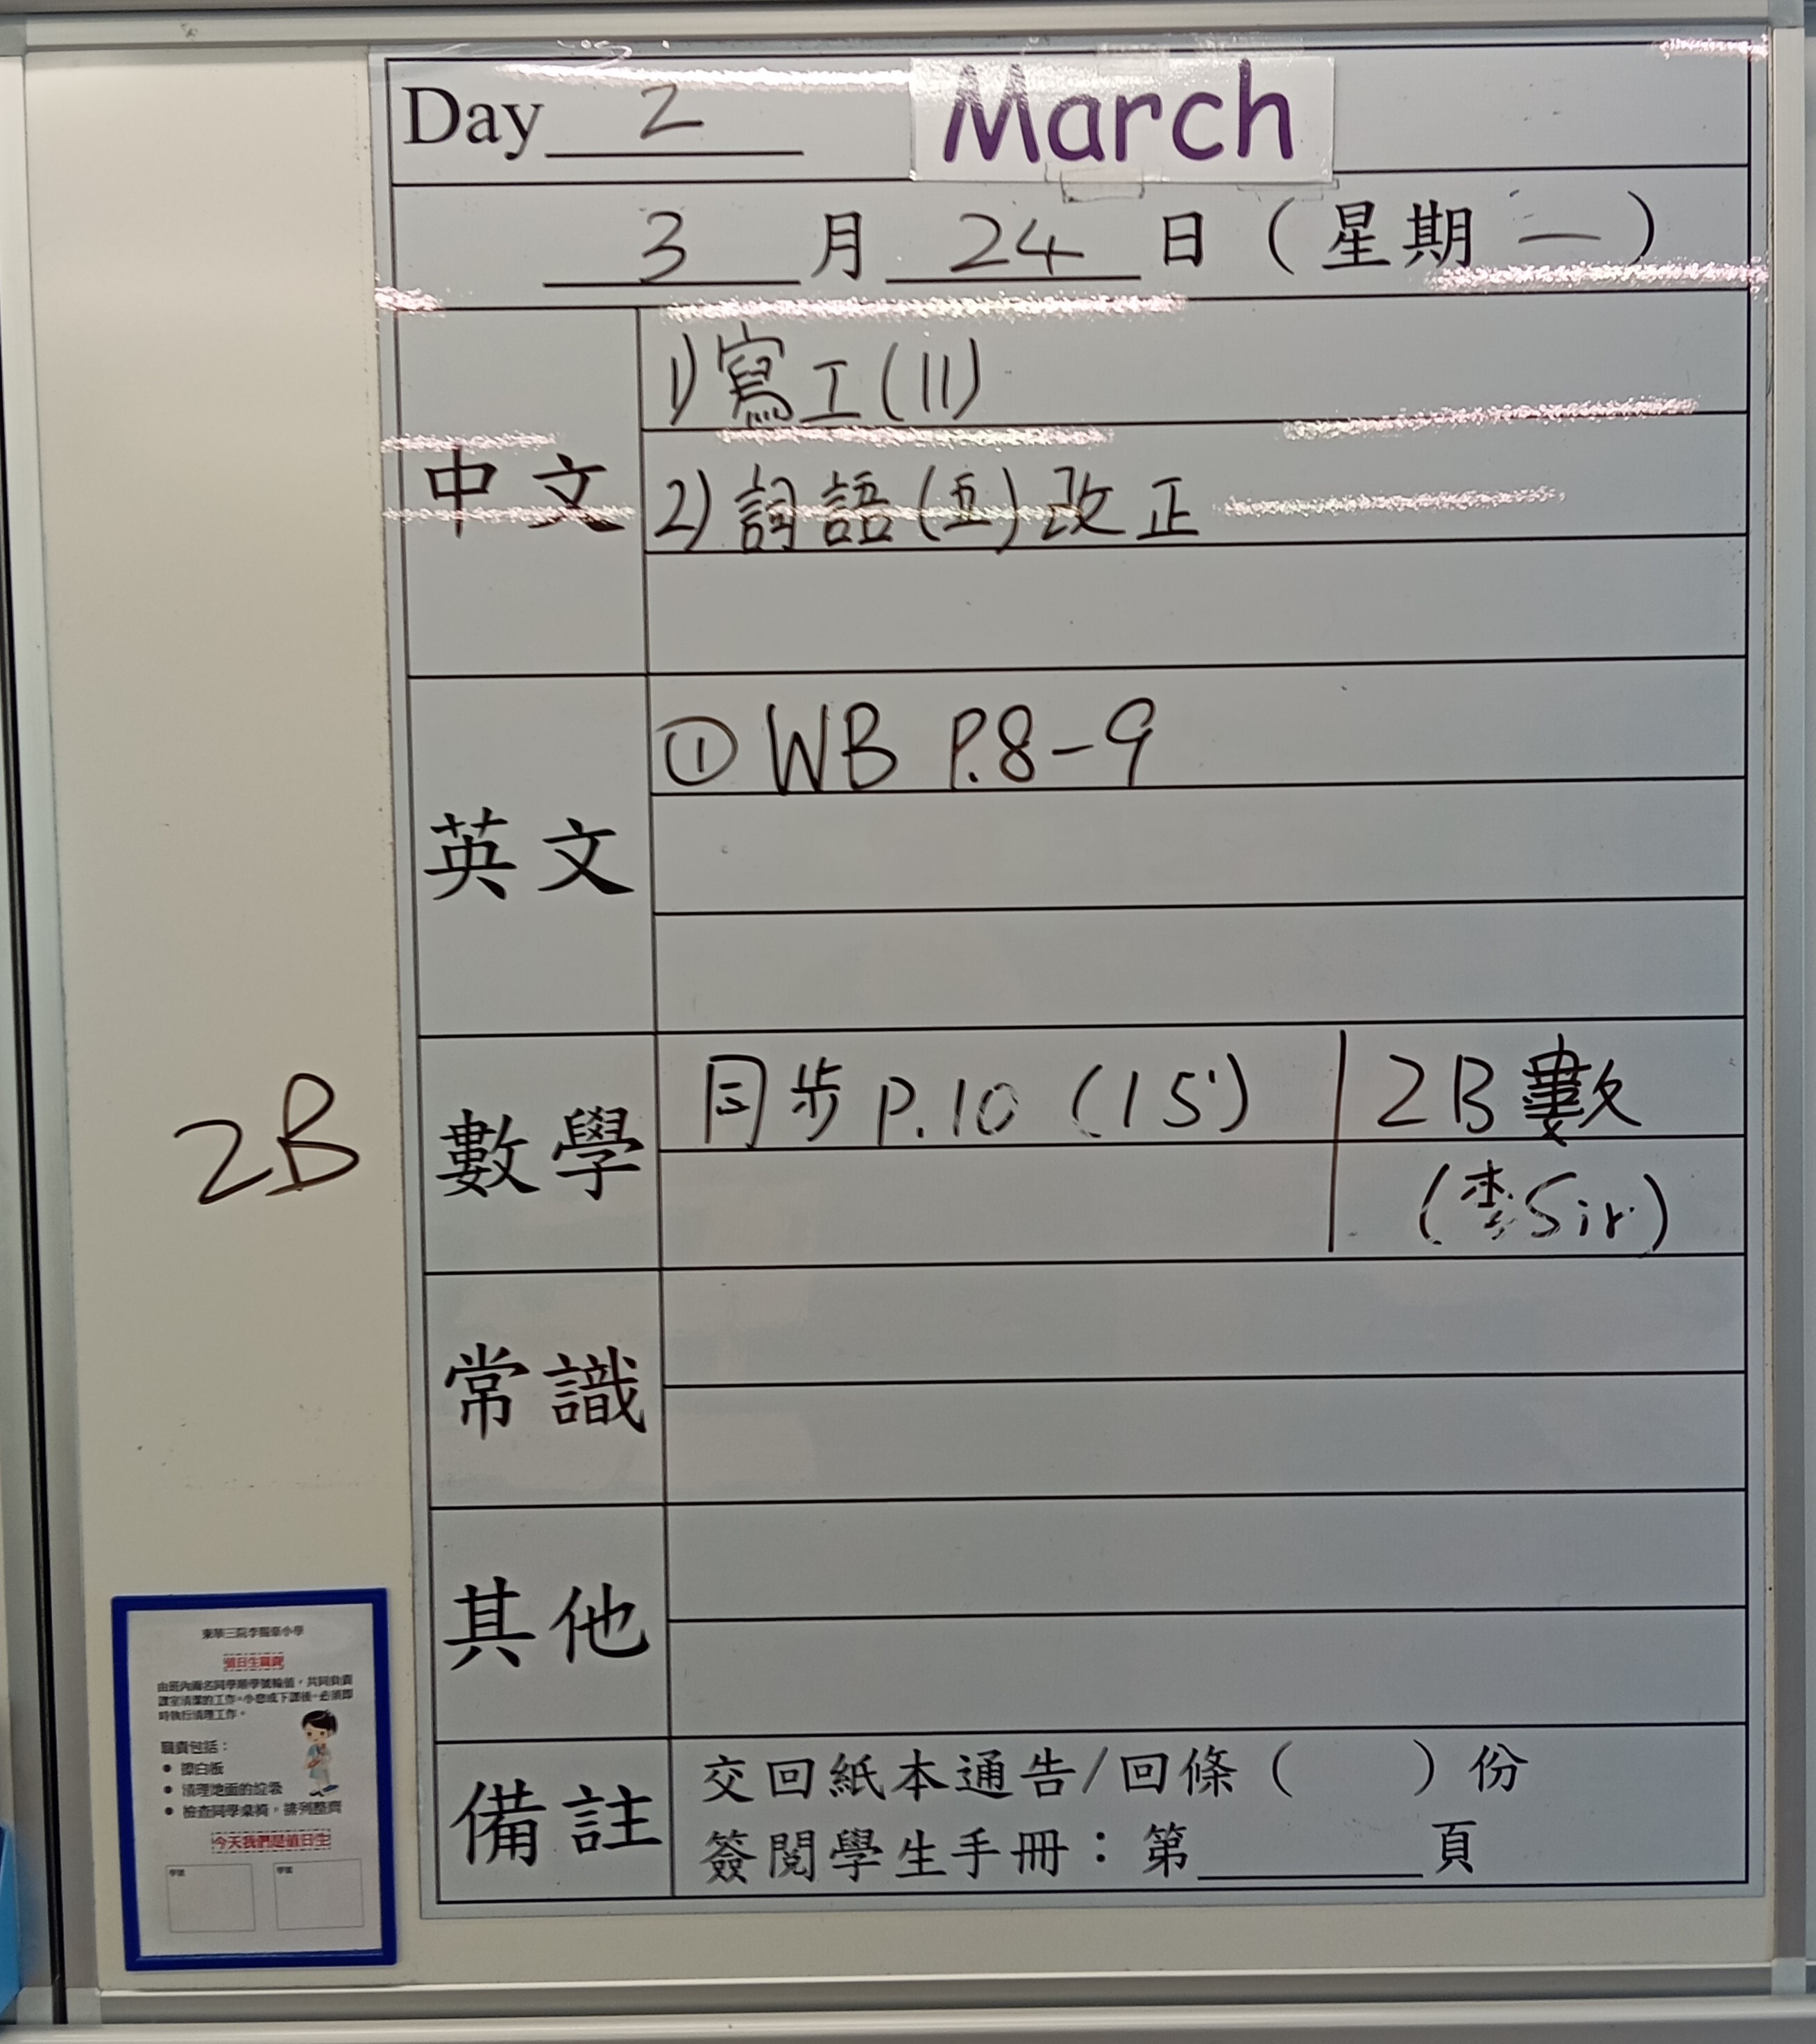 Day 2 March
3 月 24 日 ( 星期 一 )
中文
1) 寫工(11)
2) 詞語(五)改正
英文
① WB P.8-9
2B
數學
同步 P.10 (15') 2B 數
(李Sir)
常識
其他
備註
交回紙本通告/回條 ( ) 份
簽閱學生手冊：第______頁
東華三院李賜豪小學
值日生職責
由班內兩名同學順學號輪值，共同負責
課室清潔的工作。小息或下課後，必須即
時執行清理工作。
職責包括：
● 擦白板
● 清理地面的垃圾
● 檢查同學桌椅，排列整齊
今天我們是值日生
學號 學號